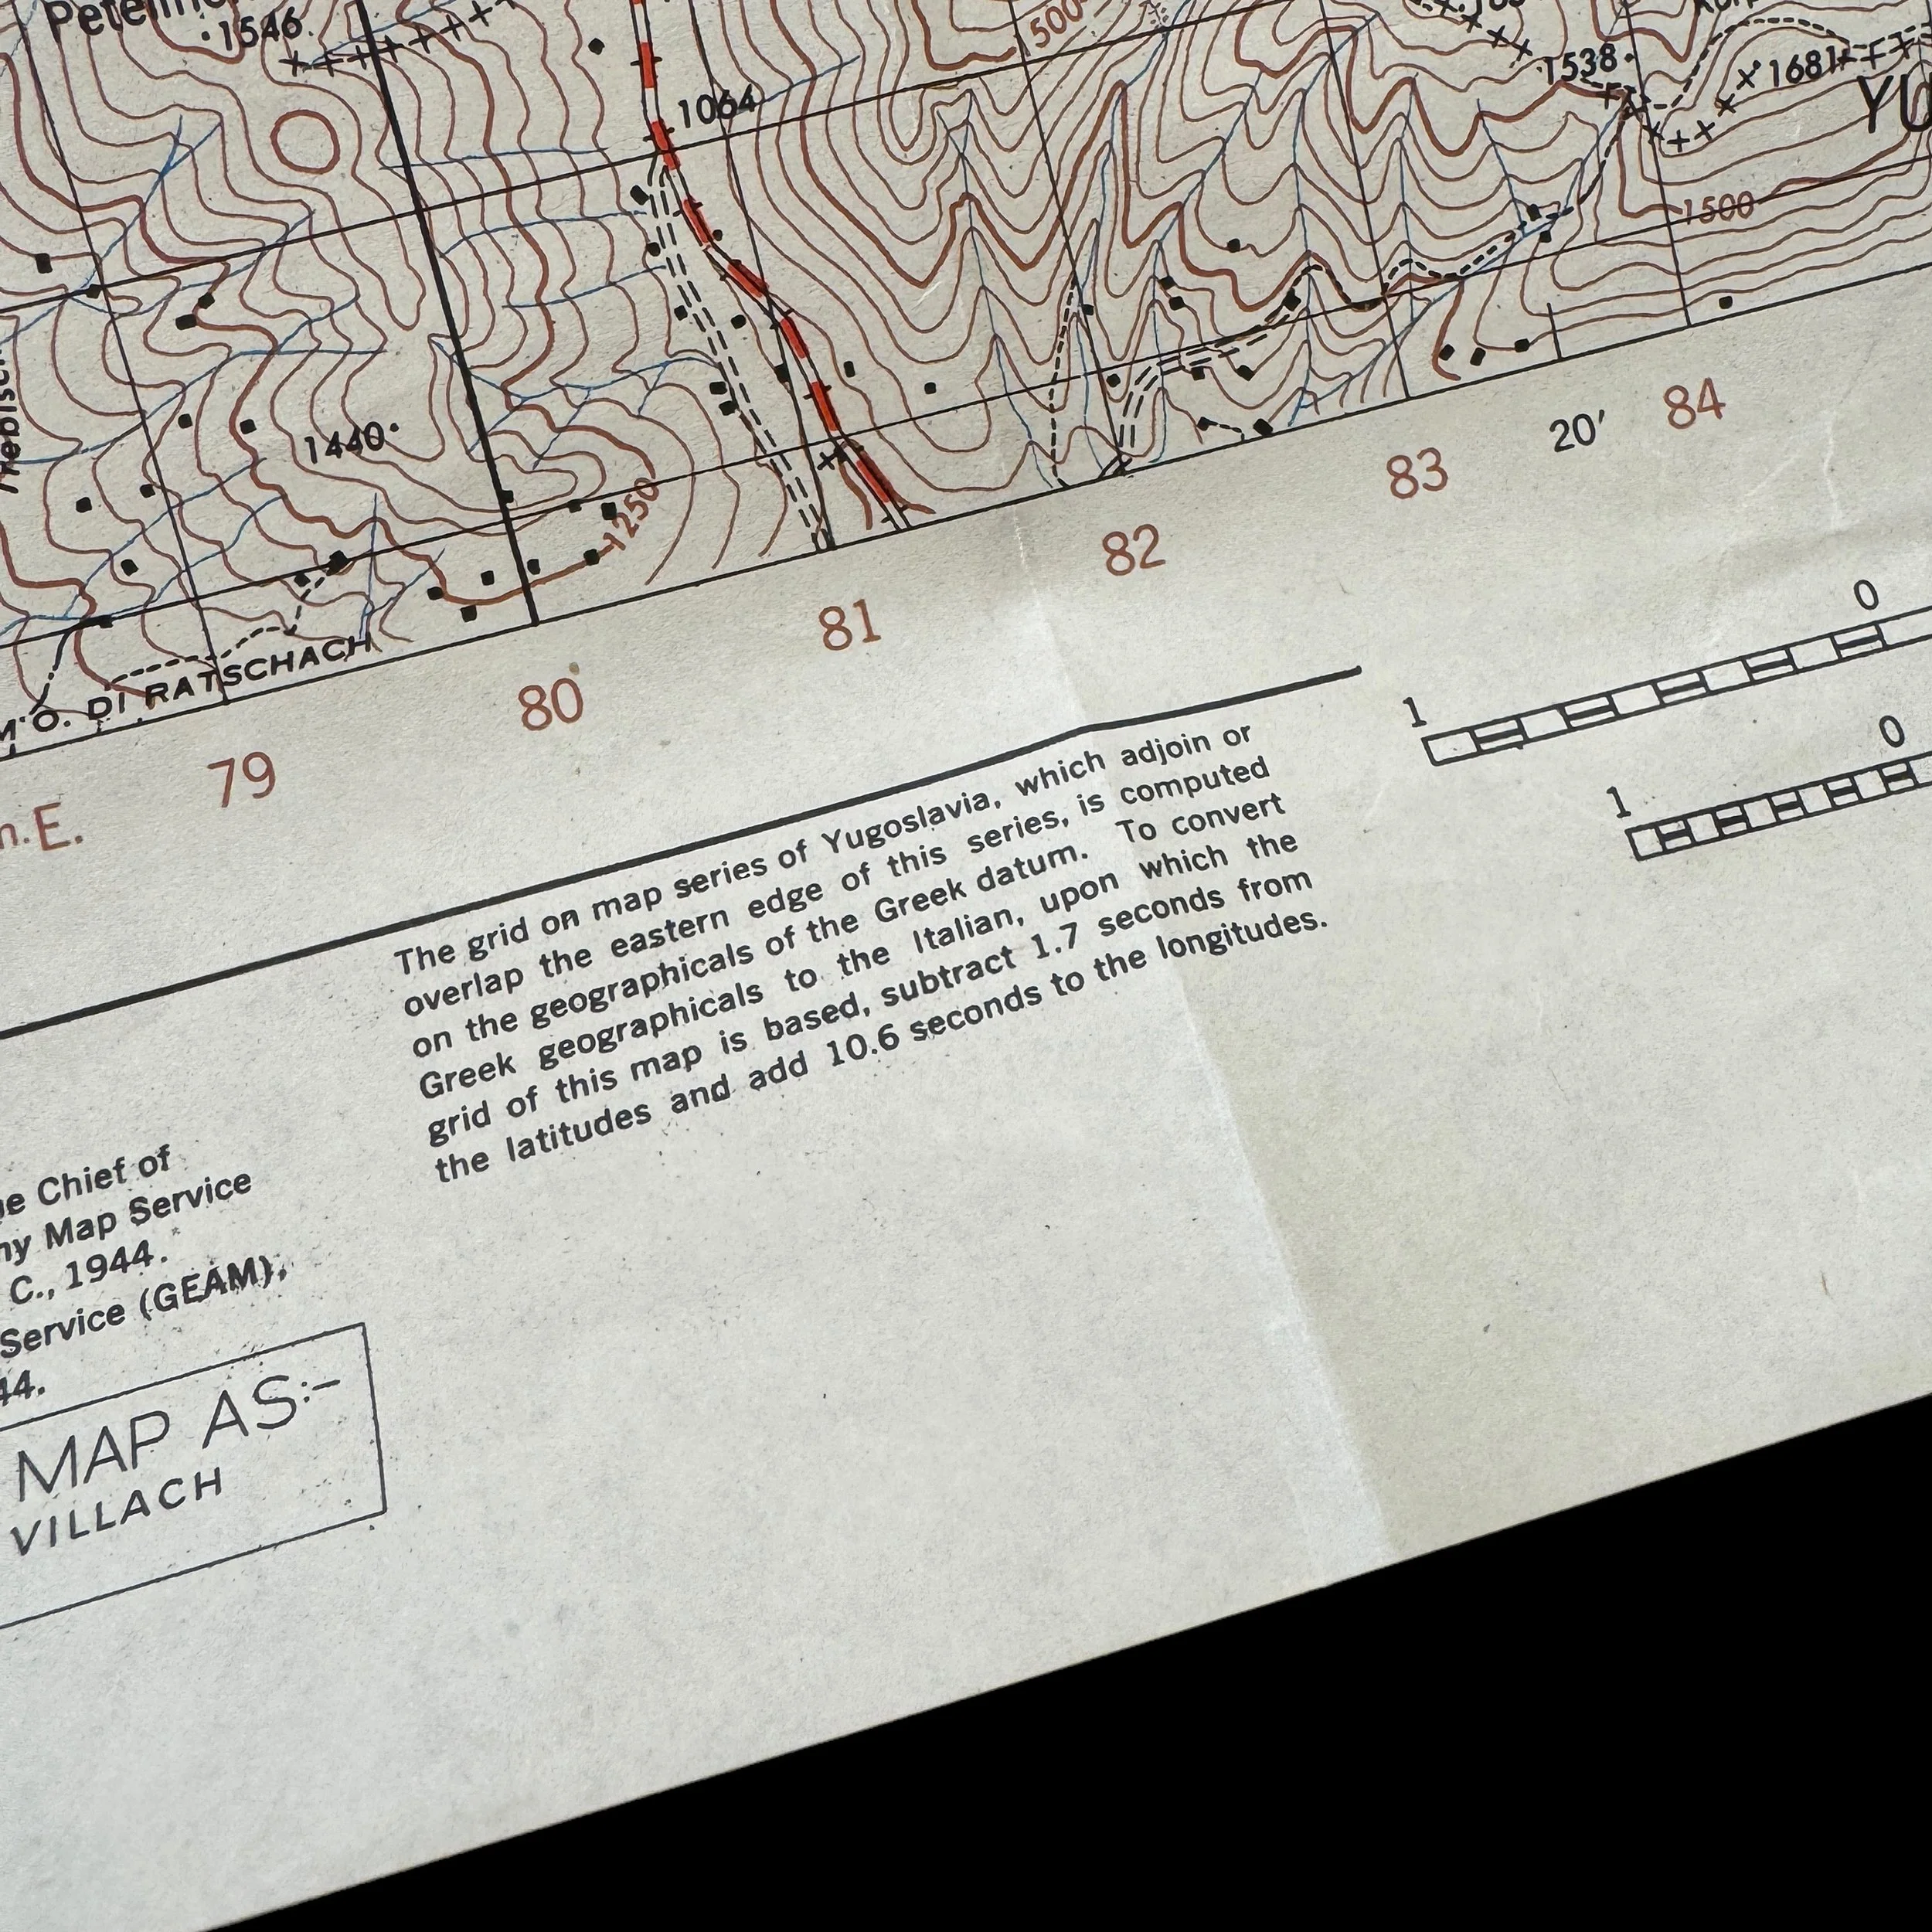 1546
1064
500
1538
1681
YU
1500
1440
1250
M.O. DI RATSCHACH
79
80
81
82
83
20′
84
E.
1
0
1
0
The grid on map series of Yugoslavia, which adjoin or
overlap the eastern edge of this series, is computed
on the geographicals of the Greek datum. To convert
Greek geographicals to the Italian, upon which the
grid of this map is based, subtract 1.7 seconds from
the latitudes and add 10.6 seconds to the longitudes.
Chief of
Map Service
C., 1944.
Service (GEAM),
44.
MAP AS:-
VILLACH